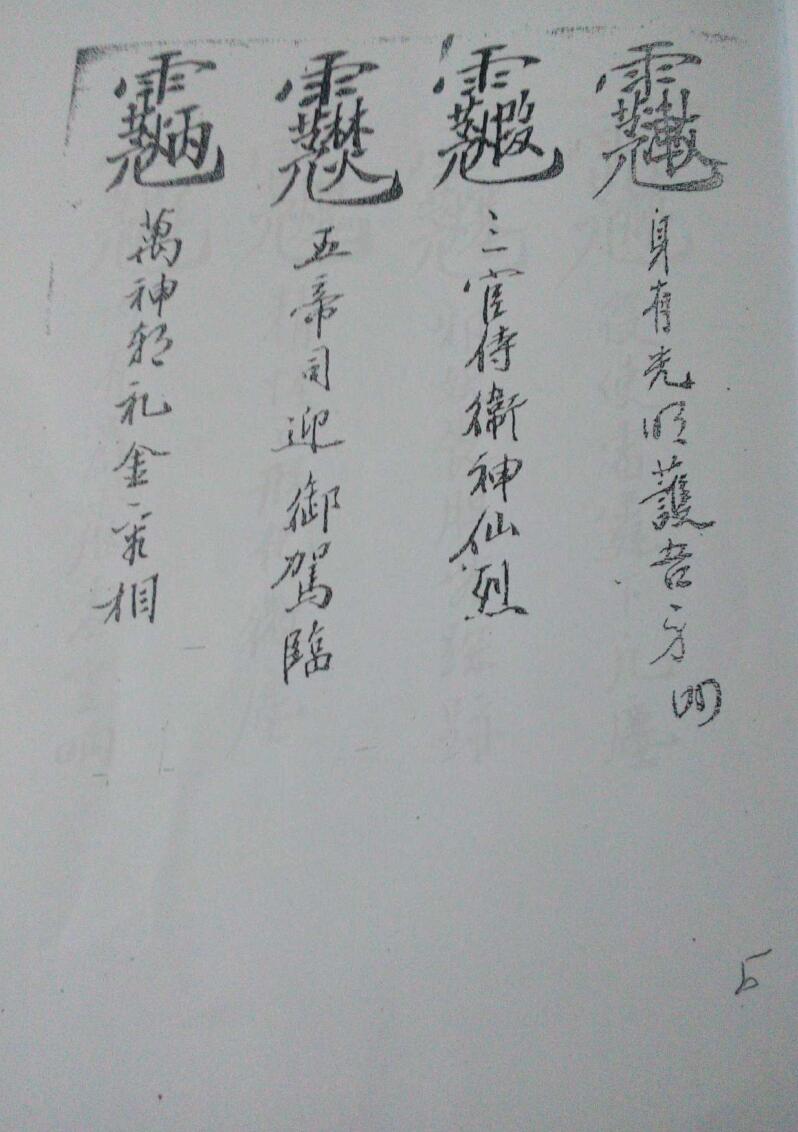 身有光明護吾身明
三官侍衛神仙烈
五帝司迎御駕臨
萬神朝礼金容相
5